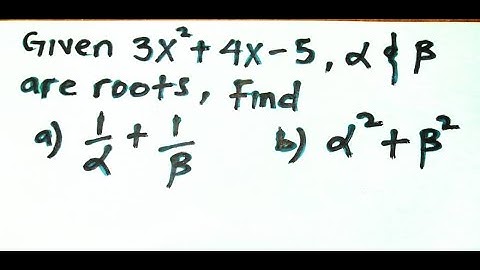 Given 3x²+4x-5, α & β
are roots, Find
a) 1/α + 1/β b) α²+β²